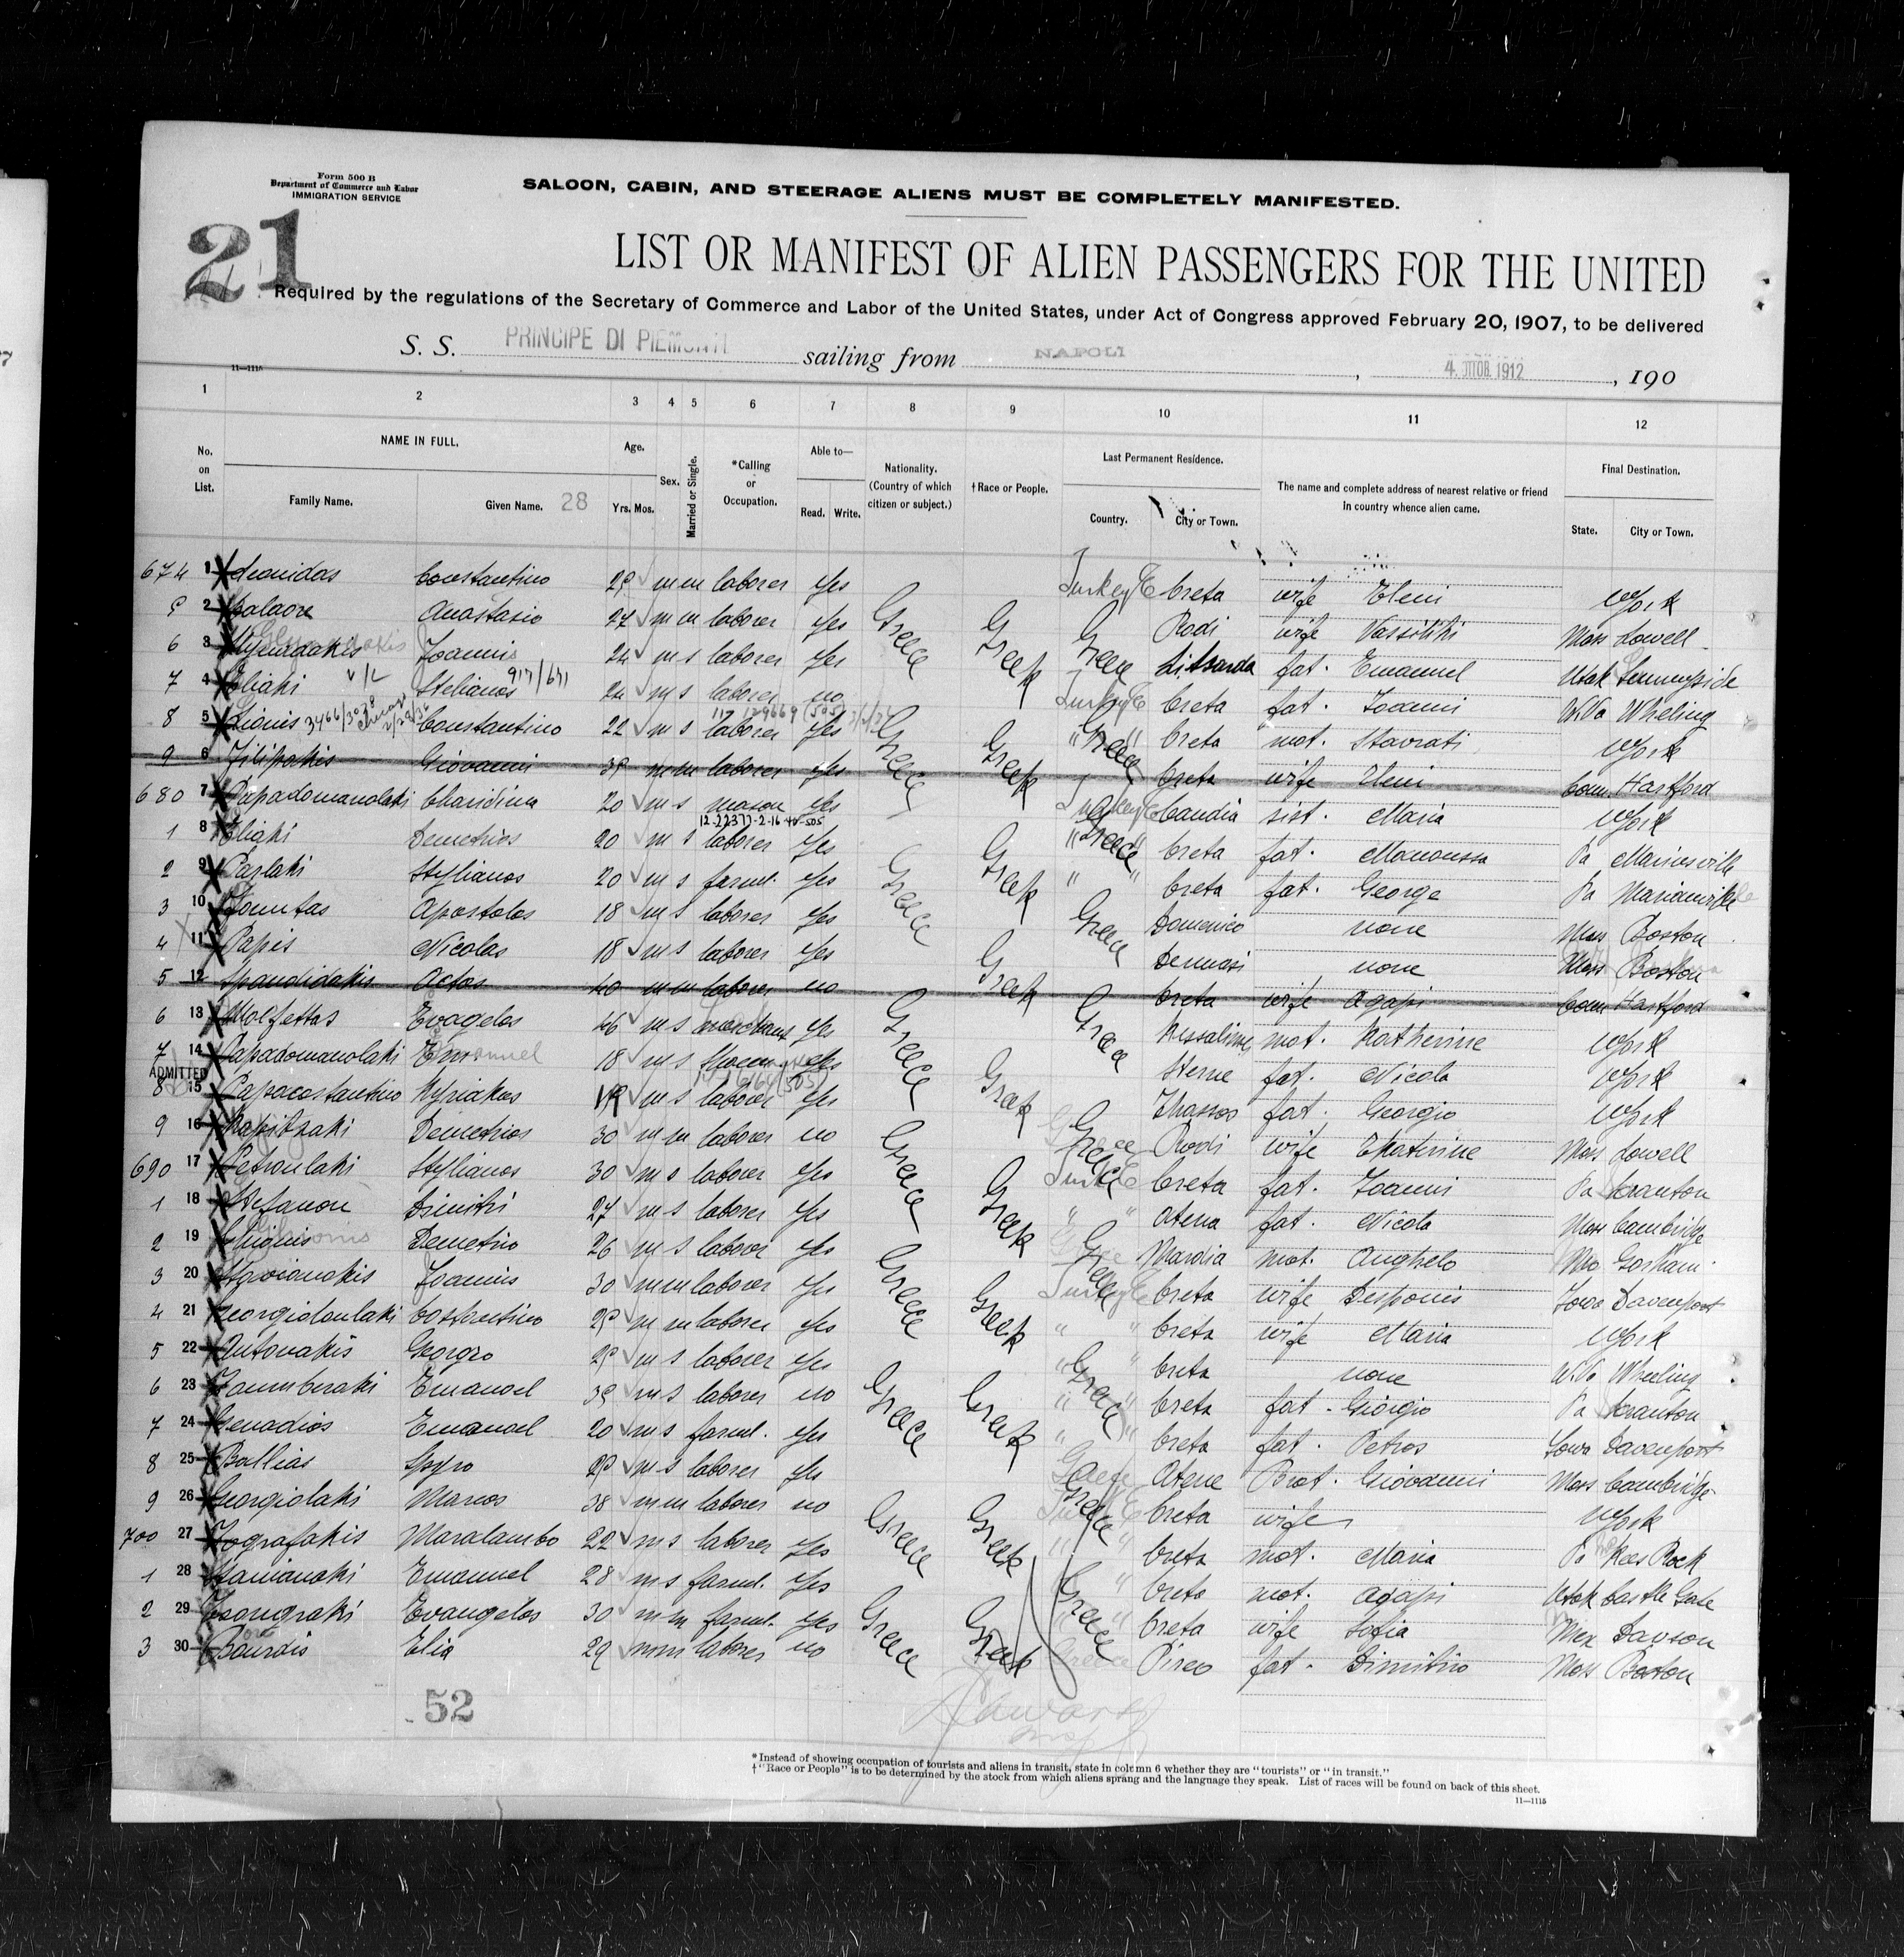 Form 500 B
Department of Commerce and Labor
IMMIGRATION SERVICE
SALOON, CABIN, AND STEERAGE ALIENS MUST BE COMPLETELY MANIFESTED.
21
LIST OR MANIFEST OF ALIEN PASSENGERS FOR THE UNITED
Required by the regulations of the Secretary of Commerce and Labor of the United States, under Act of Congress approved February 20, 1907, to be delivered
S. S. PRINCIPE DI PIEMONTE sailing from NAPOLI , 4. OTTOB. 1912 , 190
11—1115
1 2 3 4 5 6 7 8 9 10 11 12
No. on List. NAME IN FULL. Family Name. Given Name. 28 Age. Yrs. Mos. Sex. Married or Single. *Calling or Occupation. Able to— Read. Write. Nationality. (Country of which citizen or subject.) †Race or People. Last Permanent Residence. Country. City or Town. The name and complete address of nearest relative or friend in country whence alien came. Final Destination. State. City or Town.
674 1 Leonidas Constantino 29 m m laborer Yes Turkey E Creta wife Eleni N York
5 2 Anastasio 27 m m laborer Yes Greece Greek Greece Rodi wife Vassiliki Mass Lowell
6 3 Joannis 24 m s laborer Yes Litsarda fat. Emanuel Utah Sunnyside
7 4 Eliaki Stelianos 917/671 24 m s laborer no Turkey E Creta fat. Joanni W.Va Wheling
8 5 Lionis Constantino 22 m s laborer Yes Greece Greek " " Creta mot. Stavrati N York
9 6 Filipakis Giovanni 39 m m laborer Yes Creta wife Eleni Conn. Hartford
680 7 Papadomanolaki Charidima 20 m s mason Yes Turkey E Candia sist. Maria N York
1 8 Eliaki Demetrios 20 m s laborer Yes " " Creta fat. Manoussa Pa
2 9 Parlaki Stylianos 20 m s farml. Yes Greece Greek " " Creta fat. George Pa
3 10 Apostolos 18 m s laborer Yes Greece Domenico none Mass Boston
4 11 Papis Nicolas 18 m s laborer Yes none Mass Boston
5 12 Spandidakis 40 m m laborer no Greek Creta wife Agapi Conn Hartford
6 13 Molfettas Evagelos 46 m s merchant Yes Greece Greece mot. Katherine N York
7 14 Papadomanolaki Emanuel 18 m s Yes Sterne fat. Nicola N York
ADMITTED
8 15 Papacostantino Kyriakos 19 m s laborer Yes Greek Thassos fat. Georgio N York
9 16 Demetrios 30 m m laborer no Greece Greece Rodi wife Ekaterine Mass Lowell
690 17 Petroulaki Stylianos 30 m s laborer Yes Turk E Creta fat. Joanni Pa Scranton
1 18 Stefanou Dimitri 27 m s laborer Yes Greek " " Atena fat. Nicola Mass Cambridge
2 19 Demetrio 26 m s laborer Yes Greece mot. Anghelo
3 20 Joannis 30 m m laborer Yes Turkey E Creta wife Iowa Davenport
4 21 Costantino 29 m m laborer Yes Greek " " Creta wife Maria N York
5 22 Antonakis Georgio 29 m s laborer Yes " " Creta none W.Va Wheeling
6 23 Emanoel 39 m s laborer no Greece Greek " " Creta fat. Giorgio Pa Scranton
7 24 Genadios Emanoel 20 m s farml. Yes " " Creta fat. Petros Iowa Davenport
8 25 Ballias Spyro 29 m s laborer Yes Greece Atene Brot. Giovanni Mass Cambridge
9 26 Georgiolaki Marios 38 m m laborer no Greece Greek Turk E Creta wife N York
700 27 Zografakis Maralambo 22 m s laborer Yes " " Creta mot. Maria Pa Kees Rock
1 28 Emanuel 28 m s farml. Yes " Creta mot. Agapi Utah Castle Gate
2 29 Evangelos 30 m m farml. Yes Greece Greek Greece " Creta wife Sofia Mex Dawson
3 30 Bourdis Elia 29 m m laborer no Pireo fat. Dimitrio Mass Boston
52
*Instead of showing occupation of tourists and aliens in transit, state in column 6 whether they are "tourists" or "in transit."
†"Race or People" is to be determined by the stock from which aliens sprang and the language they speak. List of races will be found on back of this sheet.
11—1115